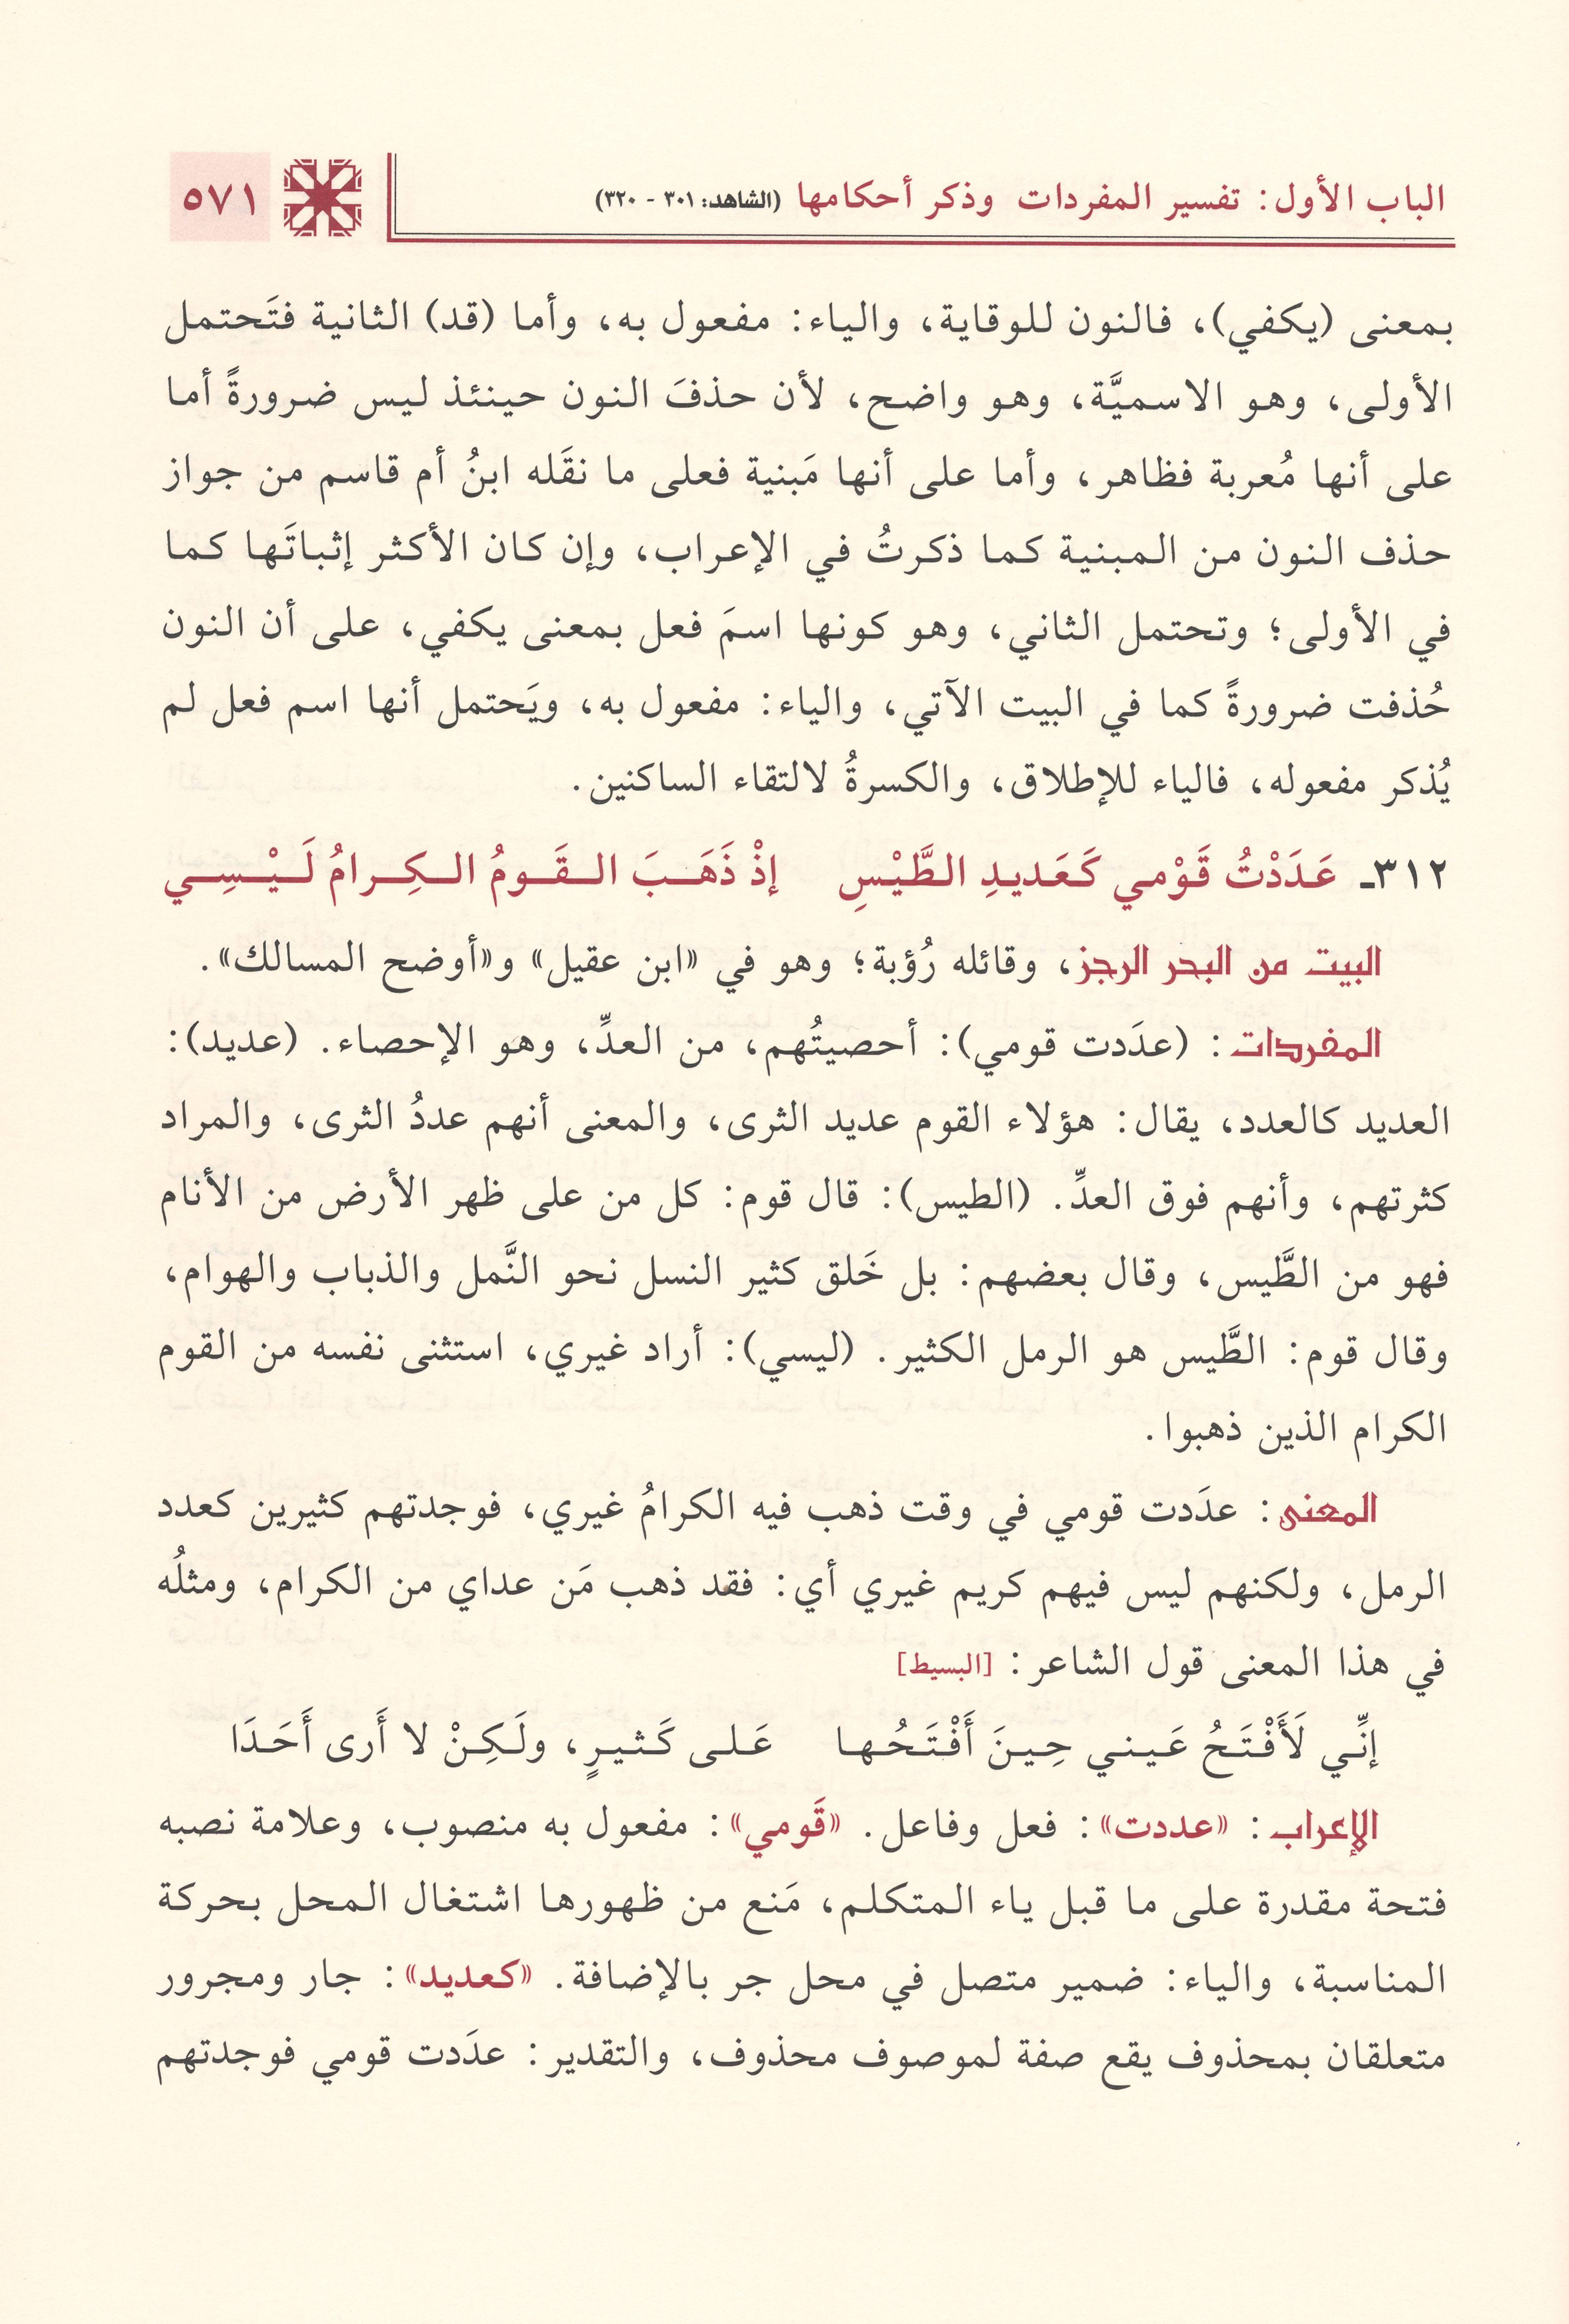 الباب الأول: تفسير المفردات وذكر أحكامها (الشاهد: ٣٠١ - ٣٢٠)
٥٧١
بمعنى (يكفي)، فالنون للوقاية، والياء: مفعول به، وأما (قد) الثانية فتَحتمل
الأولى، وهو الاسميَّة، وهو واضح، لأن حذفَ النون حينئذ ليس ضرورةً أما
على أنها مُعربة فظاهر، وأما على أنها مَبنية فعلى ما نقَله ابنُ أم قاسم من جواز
حذف النون من المبنية كما ذكرتُ في الإعراب، وإن كان الأكثر إثباتَها كما
في الأولى؛ وتحتمل الثاني، وهو كونها اسمَ فعل بمعنى يكفي، على أن النون
حُذفت ضرورةً كما في البيت الآتي، والياء: مفعول به، ويَحتمل أنها اسم فعل لم
يُذكر مفعوله، فالياء للإطلاق، والكسرةُ لالتقاء الساكنين.
٣١٢ـ عَدَدْتُ قَوْمي كَعَديدِ الطَّيْسِ إذْ ذَهَبَ القَومُ الكِرامُ لَيْسِي
البيت من البحر الرجز، وقائله رُؤبة؛ وهو في «ابن عقيل» و«أوضح المسالك».
المفردات: (عدَدت قومي): أحصيتُهم، من العدِّ، وهو الإحصاء. (عديد):
العديد كالعدد، يقال: هؤلاء القوم عديد الثرى، والمعنى أنهم عددُ الثرى، والمراد
كثرتهم، وأنهم فوق العدِّ. (الطيس): قال قوم: كل من على ظهر الأرض من الأنام
فهو من الطَّيس، وقال بعضهم: بل خَلق كثير النسل نحو النَّمل والذباب والهوام،
وقال قوم: الطَّيس هو الرمل الكثير. (ليسي): أراد غيري، استثنى نفسه من القوم
الكرام الذين ذهبوا.
المعنى: عدَدت قومي في وقت ذهب فيه الكرامُ غيري، فوجدتهم كثيرين كعدد
الرمل، ولكنهم ليس فيهم كريم غيري أي: فقد ذهب مَن عداي من الكرام، ومثلُه
في هذا المعنى قول الشاعر: [البسيط]
إنِّي لَأَفْتَحُ عَيني حِينَ أَفْتَحُها عَلى كَثيرٍ، ولَكِنْ لا أَرى أَحَدَا
الإعراب: «عددت»: فعل وفاعل. «قَومي»: مفعول به منصوب، وعلامة نصبه
فتحة مقدرة على ما قبل ياء المتكلم، مَنع من ظهورها اشتغال المحل بحركة
المناسبة، والياء: ضمير متصل في محل جر بالإضافة. «كعديد»: جار ومجرور
متعلقان بمحذوف يقع صفة لموصوف محذوف، والتقدير: عدَدت قومي فوجدتهم